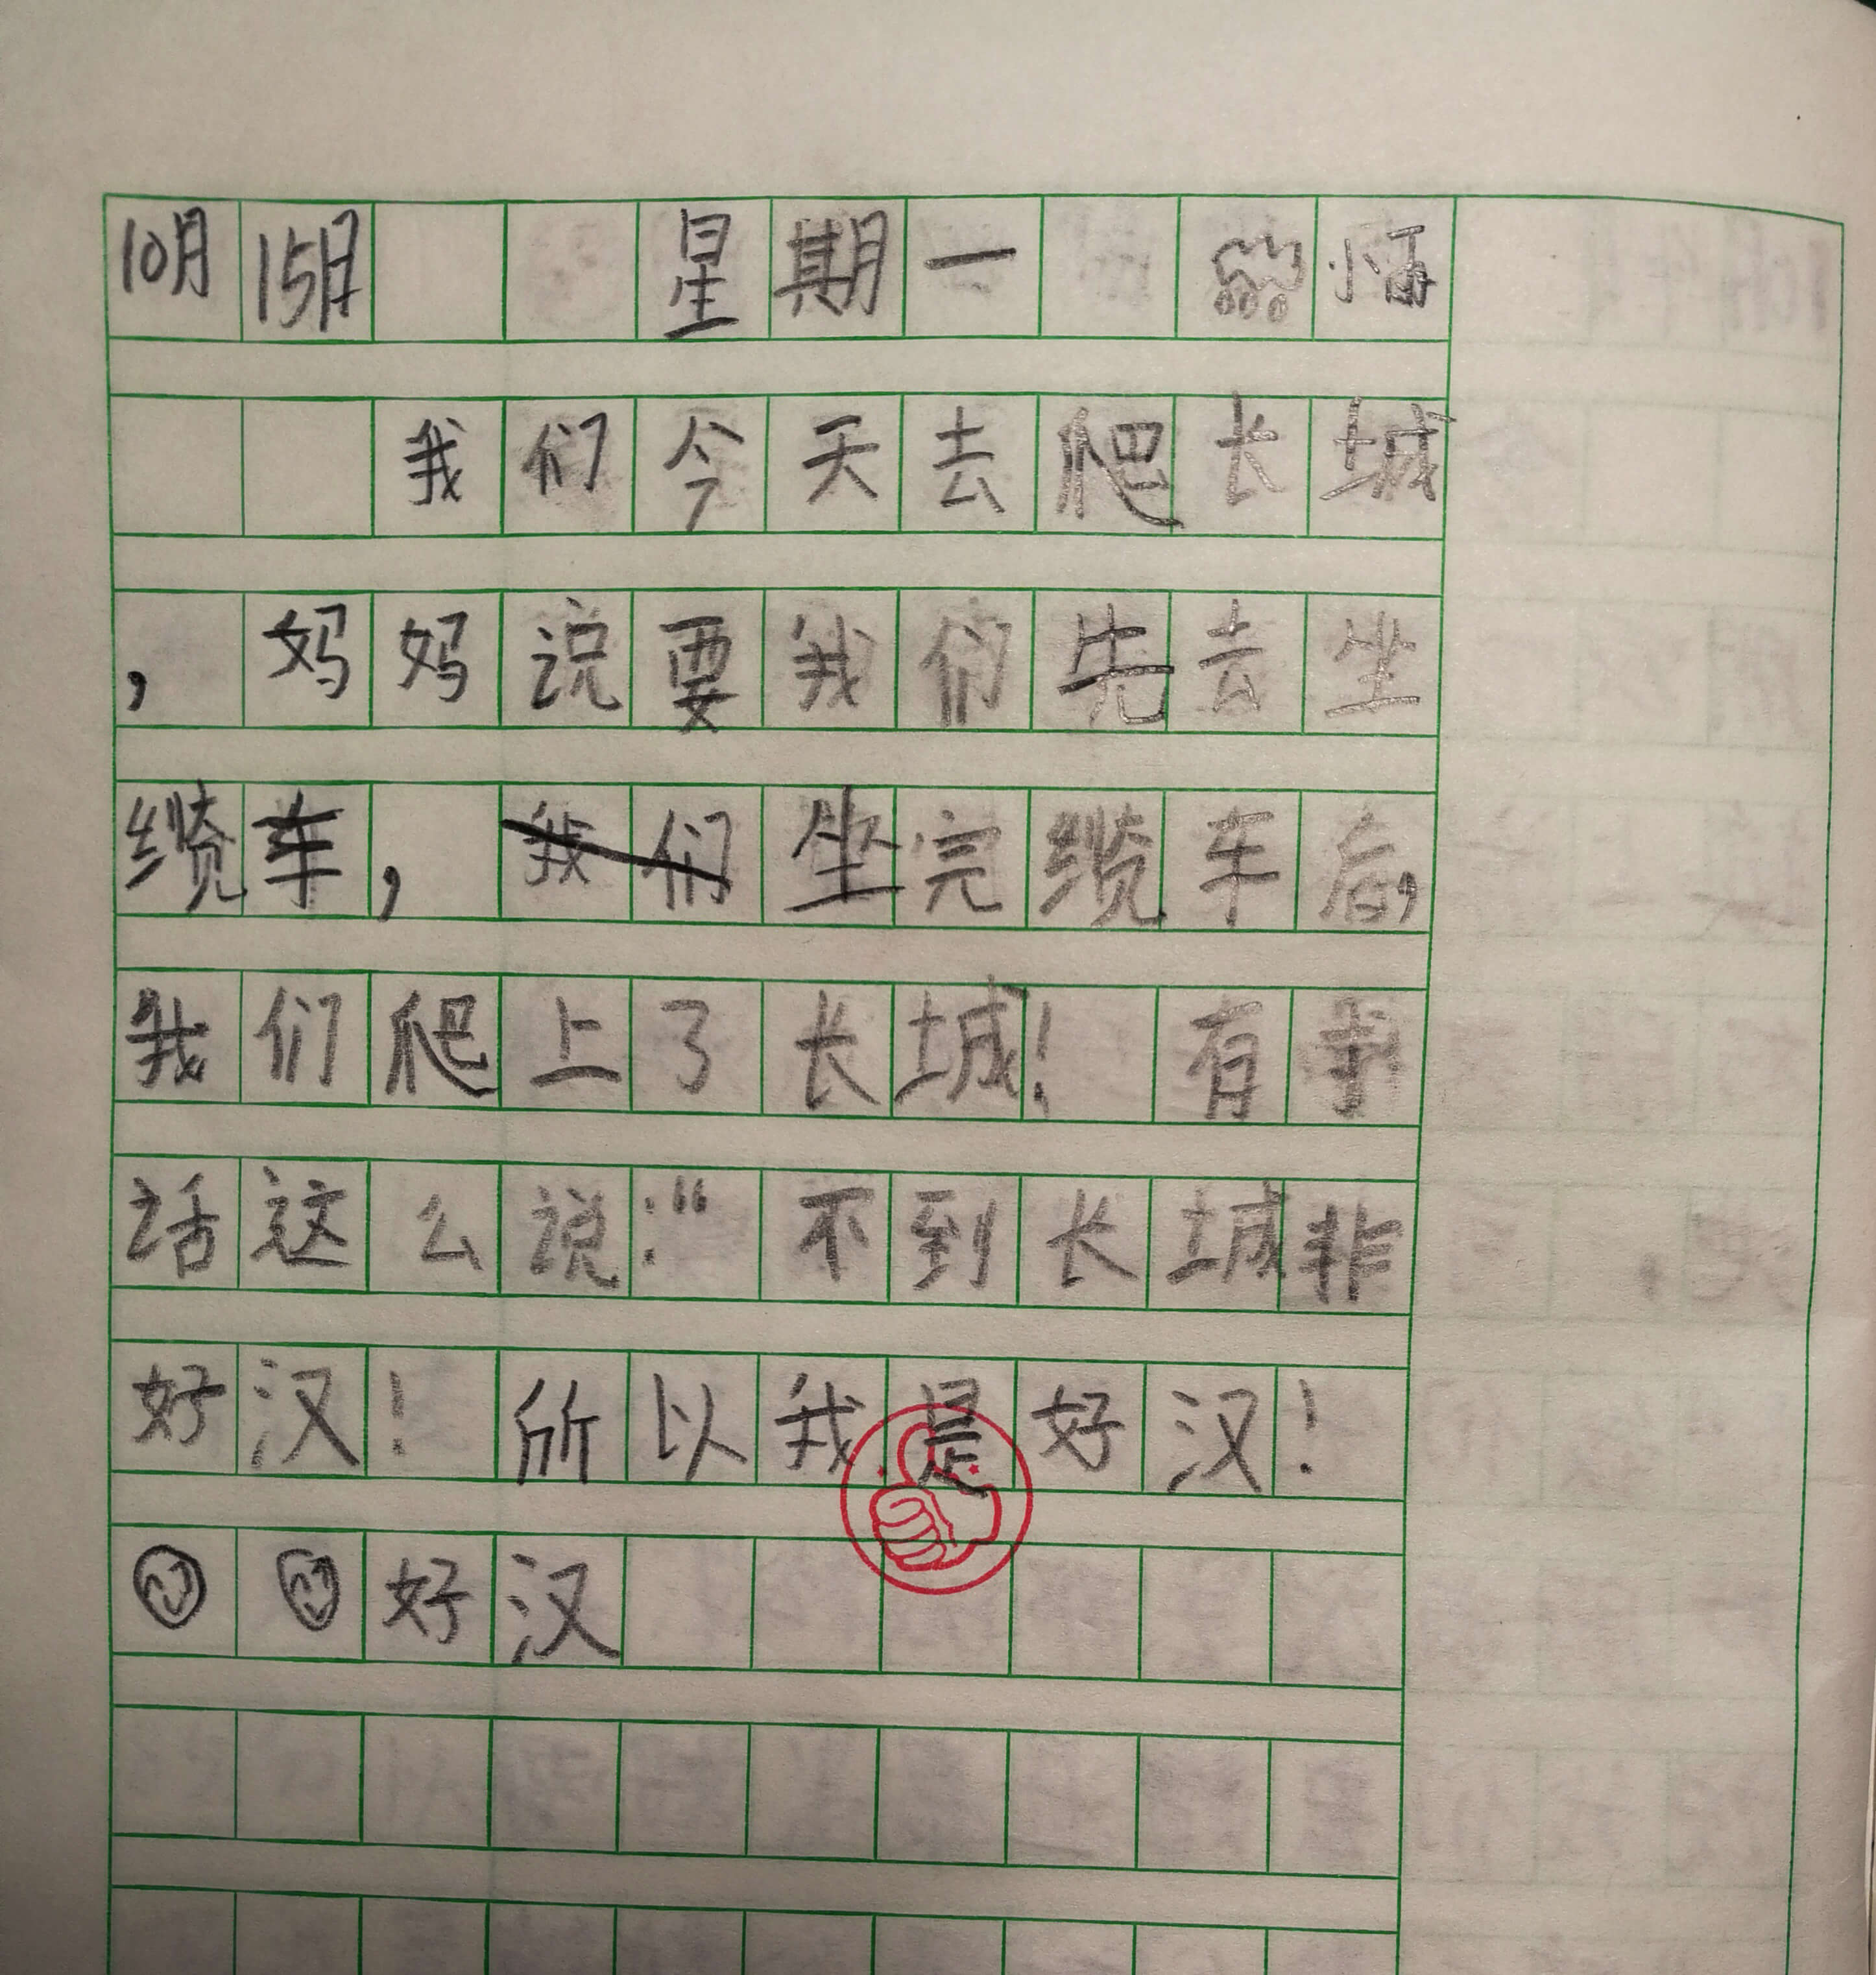 10月 15日 星期一 小雨
我们今天去爬长城
，妈妈说要我们先去坐
缆车，我们坐完缆车后，
我们爬上了长城！有
话这么说：“不到长城非
好汉！所以我是好汉！
好汉